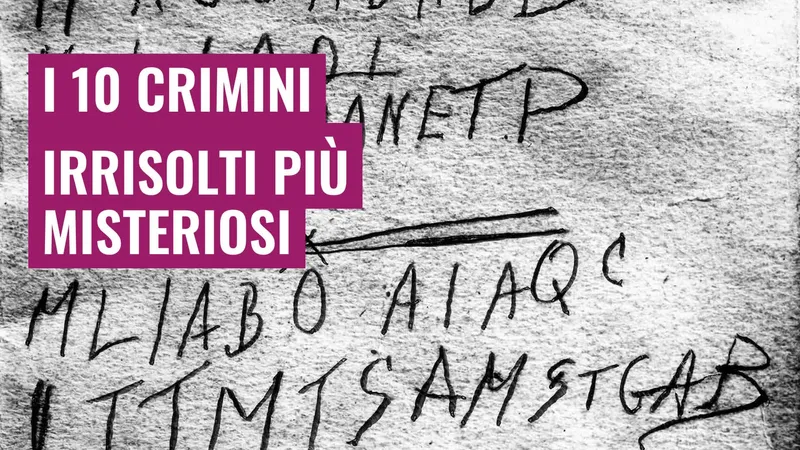 I 10 CRIMINI
IRRISOLTI PIÙ
MISTERIOSI
ANETP
MLIABO AIAQC
ITTMTSAMSTGAB